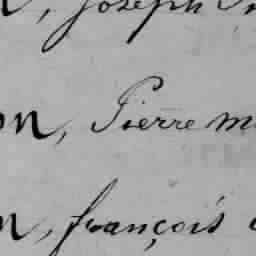 , Joseph
on, Pierre m
n, françois